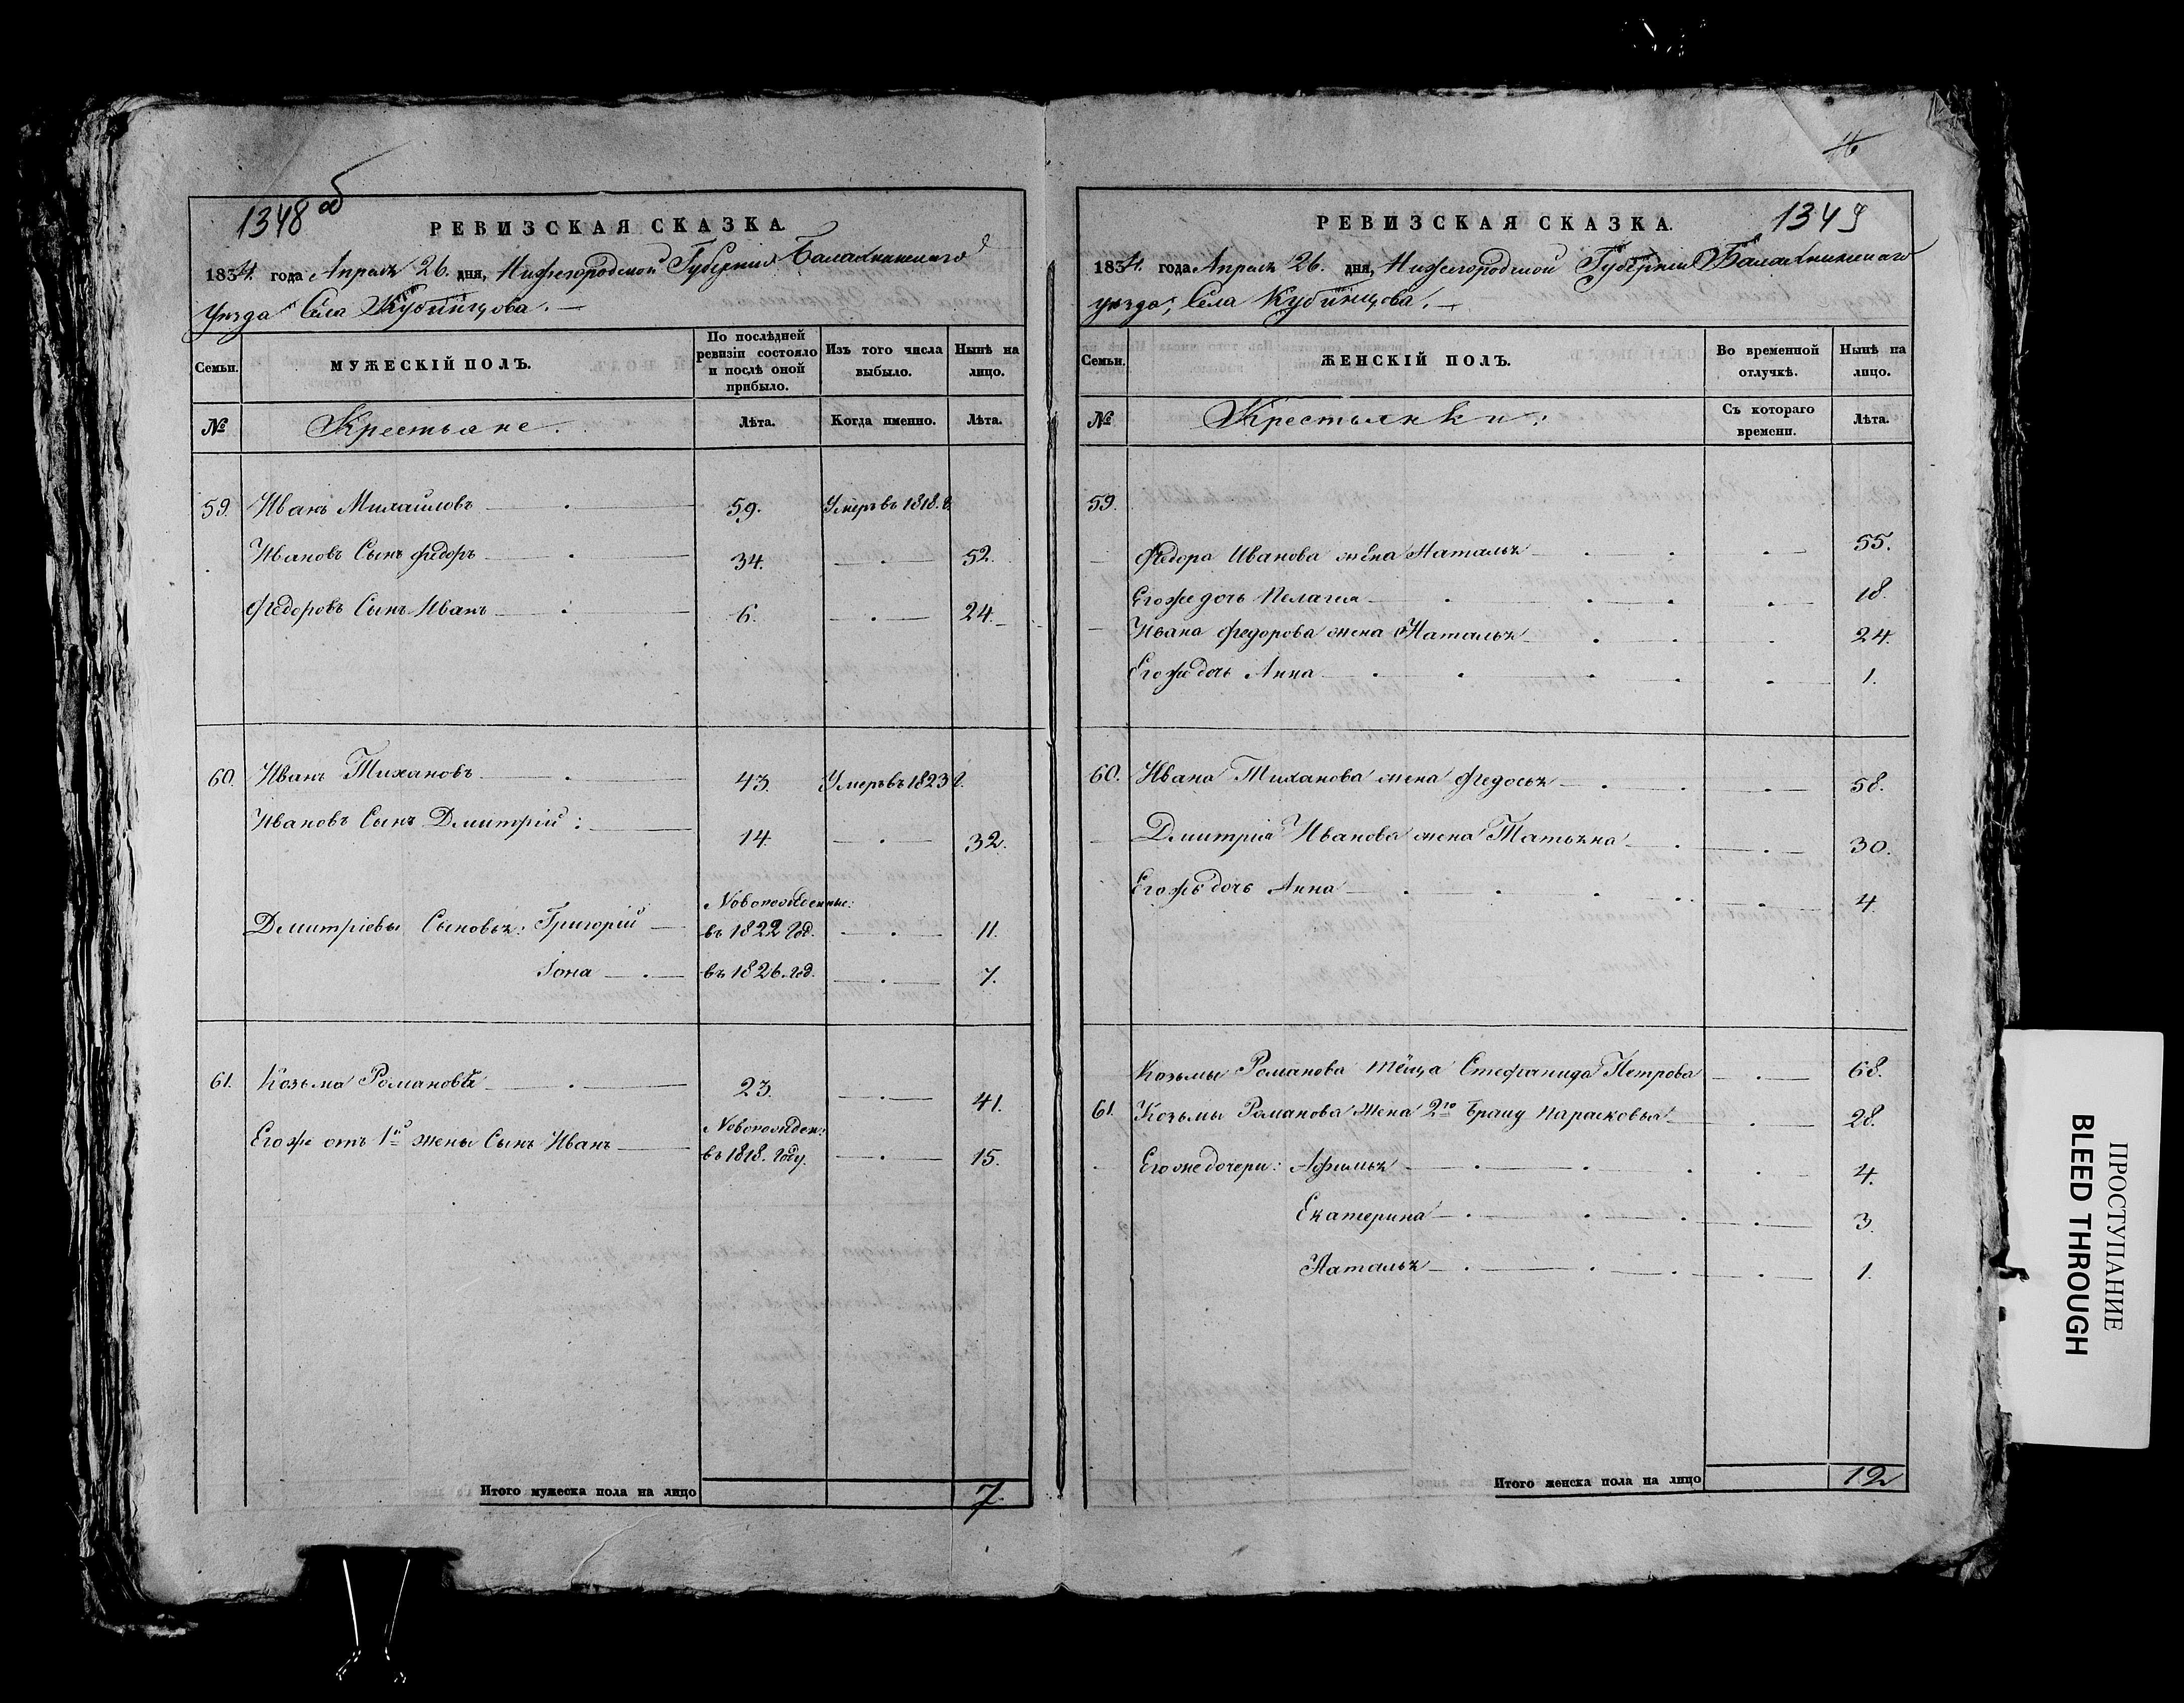 1348 об
РЕВИЗСКАЯ СКАЗКА.
1834. года Апреля 26. дня, Нижегородской Губернии Балахнинскаго
Уезда Села Кубинцова.
Семьи.
МУЖЕСКІЙ ПОЛЪ.
По послѣдней ревизіи состояло и послѣ оной прибыло.
Изъ того числа выбыло.
Нынѣ на лицо.
№
Крестьяне.
Лѣта.
Когда именно.
Лѣта.
59. Иванъ Михайловъ 59. Умеръ въ 1818. г.
Ивановъ Сынъ Федоръ 34. 52.
Федоровъ Сынъ Иванъ 6. 24.
60. Иванъ Тихановъ 43. Умеръ въ 1823 г.
Ивановъ Сынъ Дмитрій: 14. 32.
Новорожденные:
Дмитріевы Сыновья: Григорій въ 1822 год. 11.
Іона въ 1826. год. 7.
61. Козьма Романовъ 23. 41.
Новорожден:
Егоже отъ 1й жены Сынъ Иванъ въ 1818. году. 15.
Итого мужеска пола на лицо 7.
1349
РЕВИЗСКАЯ СКАЗКА.
1834. года Апреля 26. дня, Нижегородской Губерніи Балахнинскаго
уезда, Села Кубинцова.
Семьи.
ЖЕНСКІЙ ПОЛЪ.
Во временной отлучкѣ.
Нынѣ на лицо.
№
Крестьянки:
Съ котораго времени.
Лѣта.
59.
Федора Иванова жена Наталья 55.
Егоже дочь Пелагия 18.
Ивана Федорова жена Наталья 24.
Егоже дочь Анна 1.
60. Ивана Тиханова жена Федосья 58.
Дмитрія Иванова жена Татьяна 30.
Егоже дочь Анна 4.
Козьмы Романова тёща Стефанида Петрова 68.
61. Козьмы Романова жена 2го браку Парасковья 28.
Егоже дочери: Афимья 4.
Екатерина 3.
Наталья 1.
Итого женска пола на лицо 12
ПРОСТУПАНИЕ
BLEED THROUGH